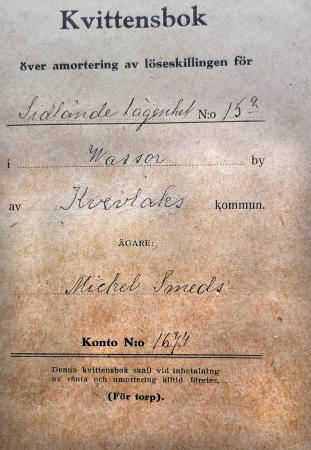 Kvittensbok
över amortering av löseskillingen för
Sidlände lägenhet N:o 15a
i Wassor by
av Kvevlaks kommun.
ÄGARE:
Michel Smeds
Konto N:o 1674
Denna kvittensbok skall vid inbetalning
av ränta och amortering alltid företes.
(För torp).